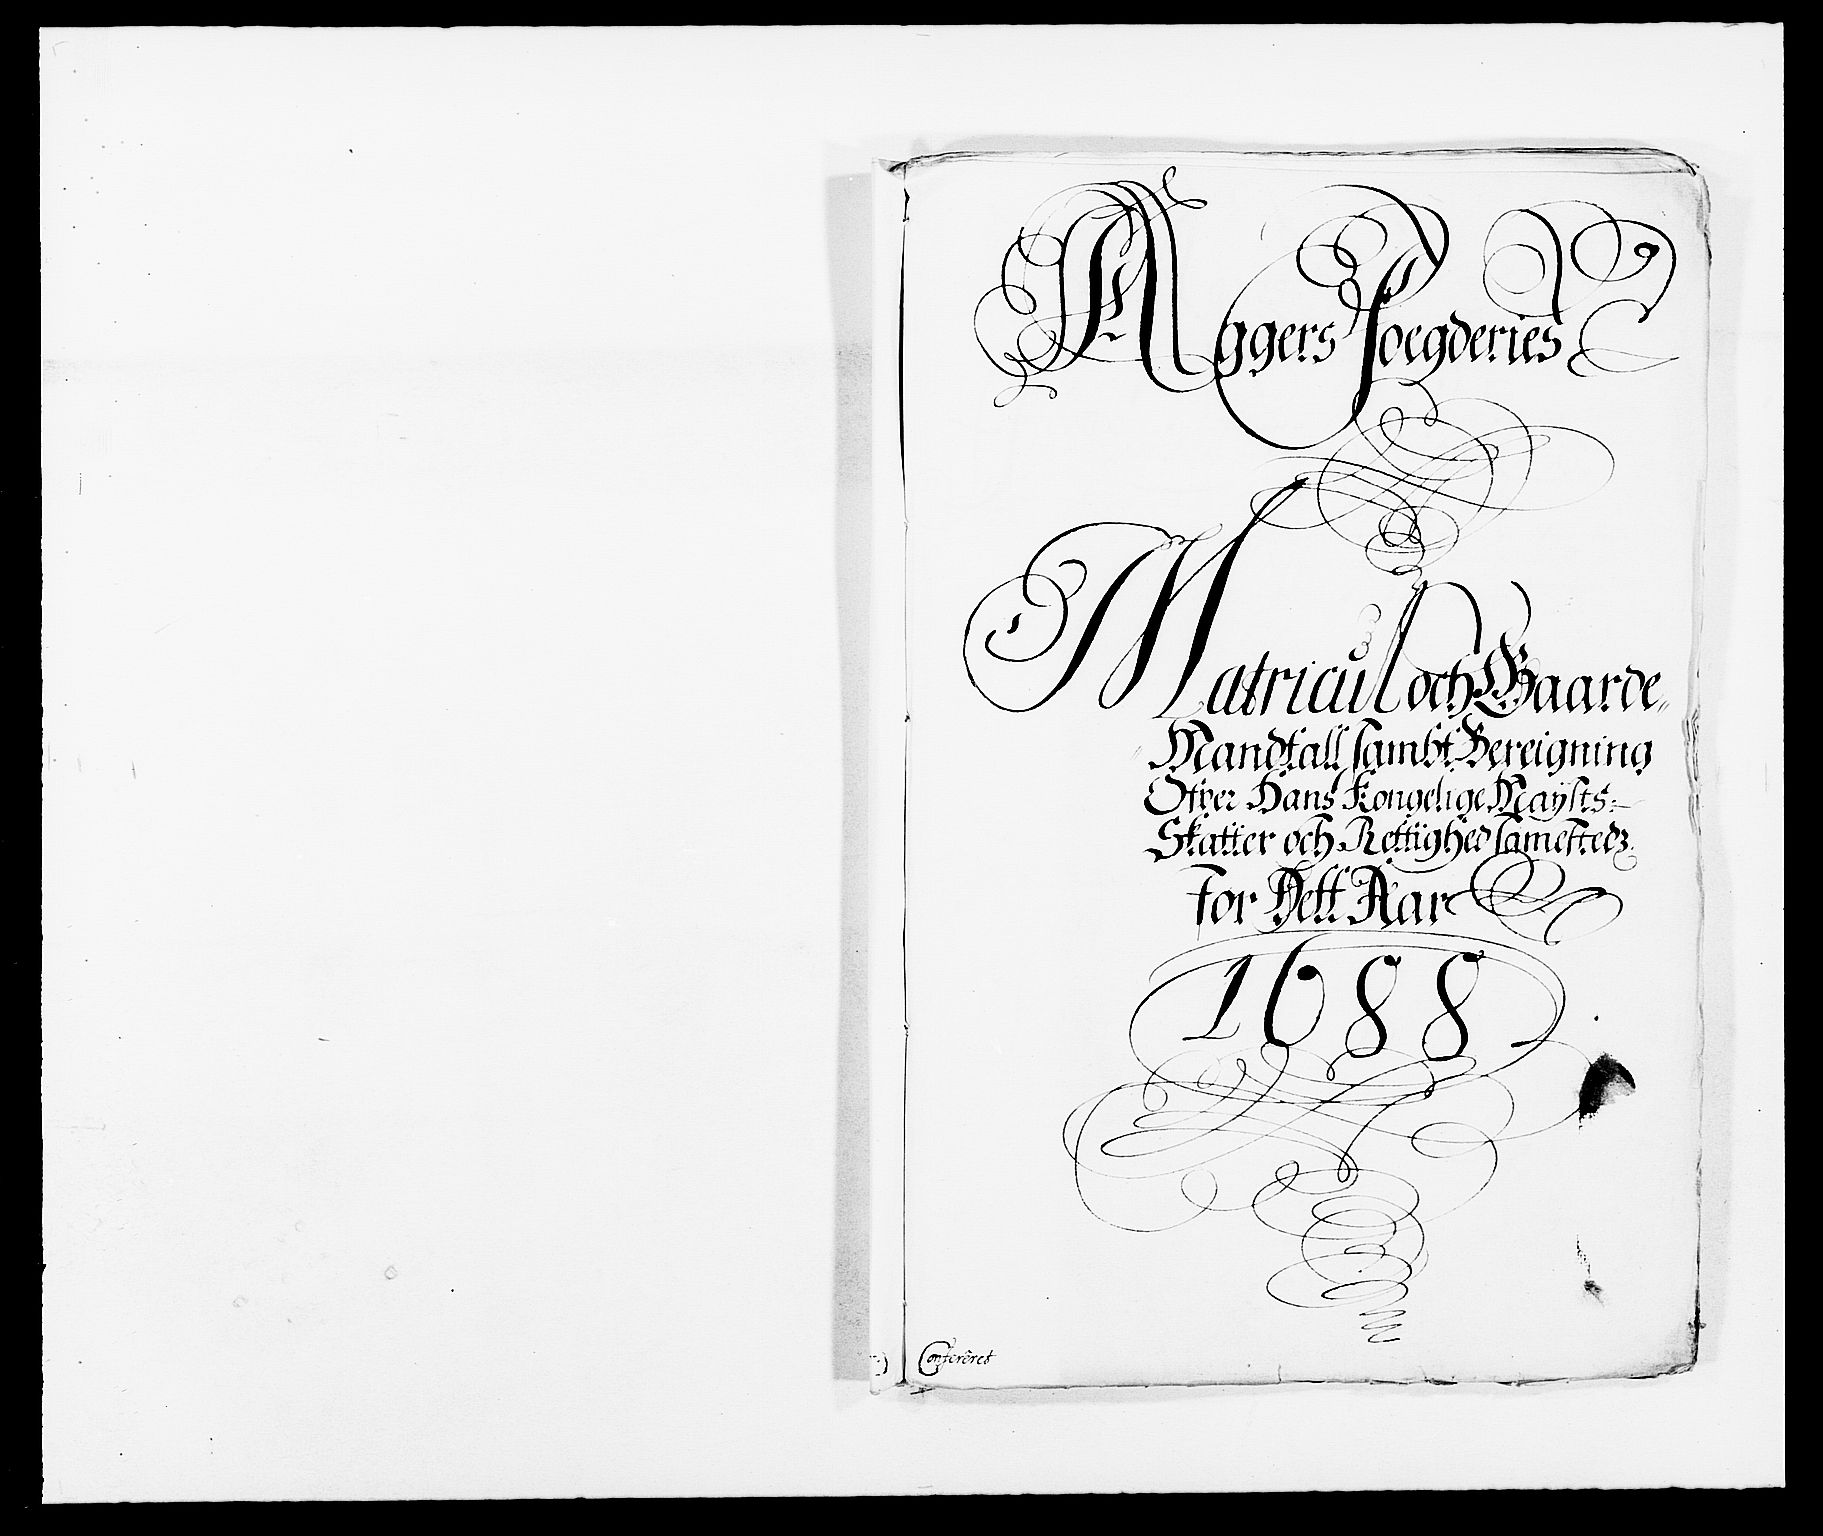 Aggers Foegderies
Matricul och Gaarde„
Mandtall sambt Bereigning
Ofver Hans Kongelige Maÿsts:
Skatter och Rettighed samestedz
for Dett Aar
1688
Confereret